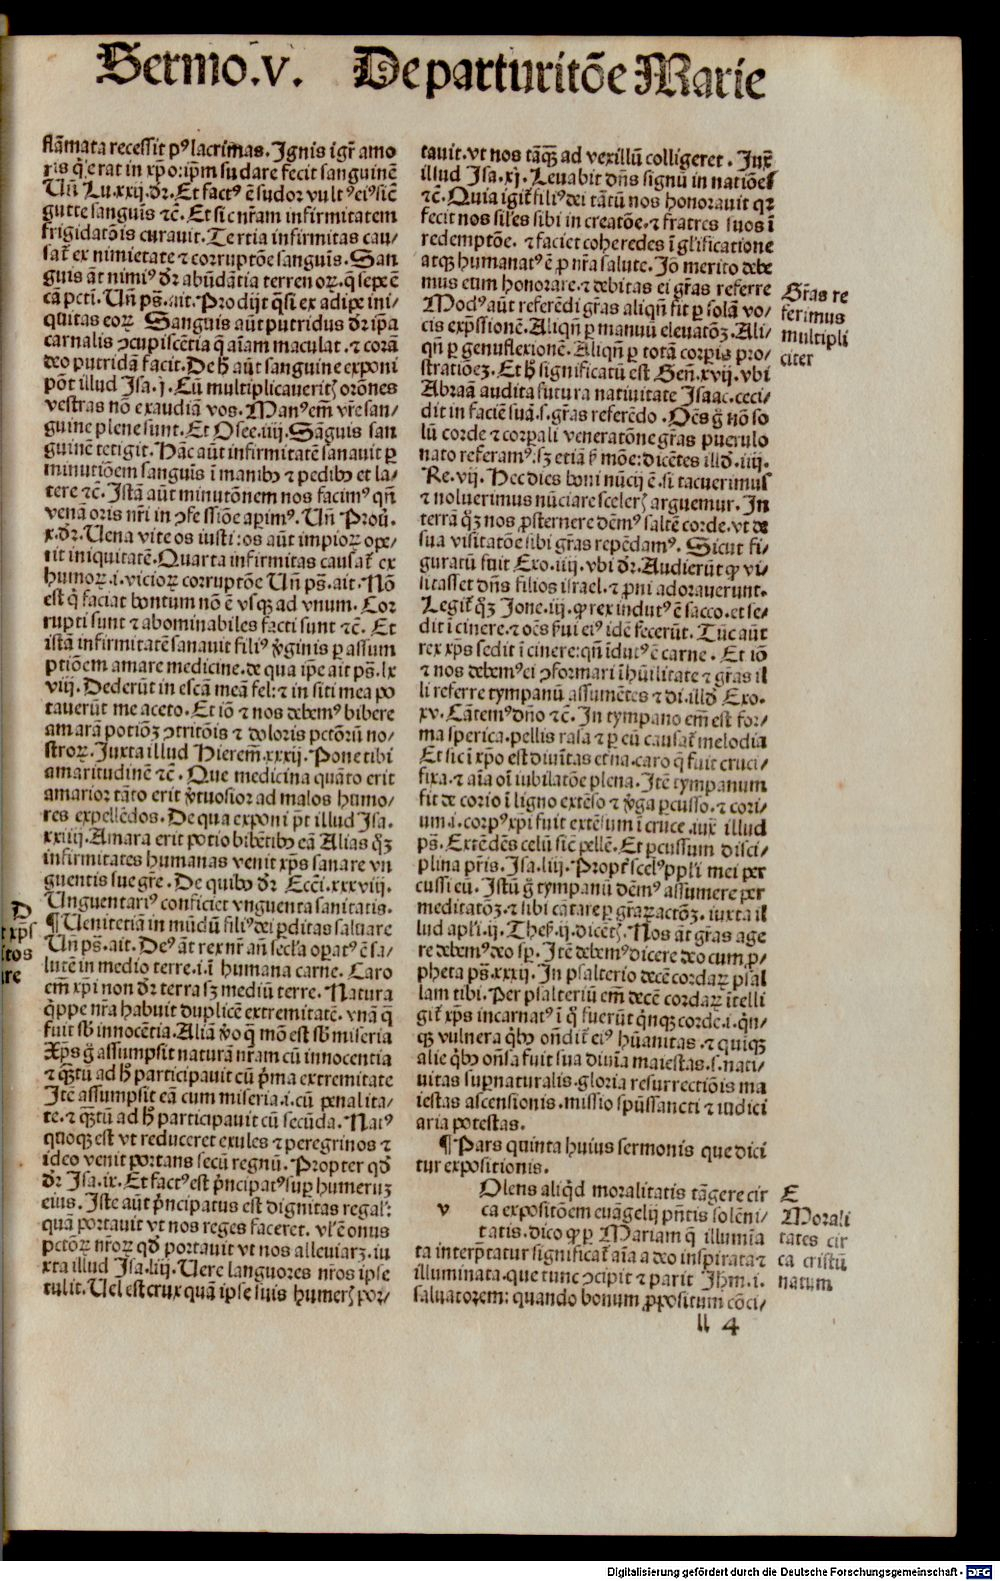 Sermo.v. De parturitõe Marie
flãmata recessit pꝰ lacrimas. Ignis igr̃ amo
ris q̇ erat in xp̃o: ip̃m sudare fecit sanguinẽ
Un̄ Lu.xxij.dr̄. Et factꝰ ẽ sudor vultꝰ eiꝰ sic̄
gutte sanguis̄ ⁊c̄. Et sic nr̃am infirmitatem
frigidatõis curauit. Tertia infirmitas cau/
sat̃ ex nimietate ⁊ corruptõe sanguis̄. San
guis āt nimiꝰ dr̄ abũdãtia terrenoꝝ. q̄ sepe ẽ
cã pctĩ. Un̄ ps̄. ait. Prodijt q̄si ex adipe ini/
quitas eoꝝ Sanguis aũt putridus dr̄ ip̃a
carnalis ꝯcupiscẽtia q̄ aĩam maculat. ⁊ corã
deo putridã facit. De hͦ aũt sanguine exponi
põt illud Isa.j. Cũ multiplicaueritꝭ orõnes
vestras nõ exaudiã vos. Manꝰ em̄ vr̃e san/
guine plene sunt. Et Osee.iiij. Sãguis san
guinẽ tetigit. Hãc aũt infirmitatẽ sanauit ꝑ
minutiõem sanguis̄ ĩ manibꝰ ⁊ pedibꝰ et la/
tere ⁊c̄. Istã aũt minutõnem nos facimꝰ qñ
venã oris nr̃i in ꝯfessiõe aꝑimꝰ. Un̄ Prou̇.
x.dr̄. Uena vite os iusti: os aũt impioꝝ ope/
rit iniquitatẽ. Quarta infirmitas causat̃ ex
humoꝝ.i.vicioꝝ corruptõe Un̄ ps̄. ait. Nõ
est q̇ faciat bonum nõ ẽ vsqꝫ ad vnum. Cor
rupti sunt ⁊ abominabiles facti sunt ⁊c̄. Et
istã infirmitatẽ sanauit filiꝰ v̇ginis ꝑ assum
ptiõem amare medicine. de qua ip̃e ait ps̄.lx
viij. Dederũt in escã meã fel: ⁊ in siti mea po
tauerũt me aceto. Et iõ ⁊ nos debemꝰ bibere
amarã potiõꝫ ꝯtritõis ⁊ doloris pctõrũ no/
stroꝝ. Iuxta illud Hierem̃.xxxij. Pone tibi
amaritudinẽ ⁊c̄. Que medicina quãto erit
amarior tãto erit v̇tuosior ad malos humo/
res expellẽdos. De qua exponi põt illud Isa.
xxiiij. Amara erit potio bibẽtibꝰ eã Alias q̇ꝫ
infirmitates humanas venit xp̃s sanare vn
guentis sue gr̃e. De quibꝰ dr̄ Ecci.xxxviij.
Unguentariꝰ conficiet vnguenta sanitatis.
¶ Uenit etiã in mũdũ filiꝰ dei ꝑditas saluare
Un̄ ps̄. ait. Deꝰ āt rex nr̃ añ secl̃a oꝑatꝰ ẽ sa/
lutẽ in medio terre.i.ĩ humana carne. Caro
em̄ xp̃i non dr̄ terra sꝫ mediũ terre. Natura
q̇ppe nr̃a habuit duplicẽ extremitatẽ. vnã q̄
fuit sb̃ innocẽtia. Aliã v̇o q̄ mõ est sb̃ miseria
Xp̃s g̊ assumpsit naturã nr̃am cũ innocentia
⁊ q̄ꝫtũ ad hͦ participauit cũ p̃ma extremitate
Itẽ assumpsit eã cum miseria.i.cũ penalita/
te.⁊ q̄ꝫtũ ad hͦ participauit cũ secũda. Natꝰ
quoqꝫ est vt reduceret exules ⁊ peregrinos ⁊
ideo venit portans secũ regnũ. Propter qd̃
dr̄ Isa.ix. Et factꝰ est p̃ncipatꝰ suꝑ humerũ
eius. Iste aũt p̃ncipatus est dignitas regal̃:
quã portauit vt nos reges faceret. vl̃ ẽ onus
pctõꝝ nr̃oꝝ qd̃ portauit vt nos alleuiarꝫ. iu
xta illud Isa.liij. Uere languores nr̃os ipse
tulit. Uel est crux quã ipse suis humerꝭ por/
tauit. vt nos tãqꝫ ad vexillũ colligeret. Iux̃
illud Isa.xj. Leuabit dñs signũ in natiões
⁊c̄. Quia igit̃ filiꝰ dei tãtũ nos honorauit qꝛ
fecit nos sil̃es sibi in creatõe. ⁊ fratres suos ĩ
redemptõe. ⁊ faciet coheredes ĩ gl̃ificatione
atqꝫ humanatꝰ ẽ ꝓ nr̃a salute. Iõ merito debe
mus eum honorare. ⁊ debitas ei gr̃as referre
Modꝰ aũt referẽdi gr̃as aliqñ fit ꝑ solã vo/
cis exp̃ssionẽ. Aliqñ ꝑ manuũ eleuatõꝫ. Ali/
qñ ꝑ genuflexionẽ. Aliqñ ꝑ totã corꝑis pro/
stratiõeꝫ. Et hͦ significatũ est Gen̄.xvij. vbi
Abraã audita futura natiuitate Isaac. ceci/
dit in faciẽ suã.s.gr̃as referẽdo. Oẽs g̊ nõ so
lũ corde ⁊ corꝑali veneratõne gr̃as puerulo
nato referamꝰ: sꝫ etiã ṡmõe: dicẽtes illd̃.iiij.
Re.vij. Hec dies boni nũcij ẽ. si tacuerimus
⁊ noluerimus nũciare scelerꝭ arguemur. In
terrã q̇ꝫ nos ꝓsternere dẽmꝰ saltẽ corde. vt de
sua visitatõe sibi gr̃as repẽdamꝰ. Sicut fi/
guratũ fuit Exo.iiij. vbi dr̄. Audierũt ꝙ vi/
sitasset dñs filios israel. ⁊ ꝓni adorauerunt.
Legit̃ q̇ꝫ Jone.iij. ꝙ rex indutꝰ ẽ sacco. et se/
dit ĩ cinere. ⁊ oẽs ṡui eiꝰ idẽ fecerũt. Tũc aũt
rex xp̃s sedit ĩ cinere: qñ ĩdutꝰ ẽ carne. Et iõ
⁊ nos debemꝰ ei ꝯformari ĩ hũilitate ⁊ gr̃as il
li referre tympanũ assumẽtes ⁊ di. illd̃ Exo.
xv. Cãtemꝰ dño ⁊c̄. In tympano em̃ est for/
ma sperica. pellis rasa ⁊ ꝑ cũ causat̃ melodia
Et sic ĩ xp̃o est diuĩtas etna. caro q̄ fuit cruci/
fixa. ⁊ aĩa oĩ iubilatõe plena. Itẽ tympanum
fit de corio ĩ ligno extẽso ⁊ v̇ga ꝑcusso. ⁊ cori/
um.i. corpꝰ xp̃i fuit extẽsum ĩ cruce. iux̃ illud
ps̄. Extẽdẽs celũ sic̄ pellẽ. Et ꝑcussum disci/
plina pr̃is. Isa.liij. Propt̃ scelꝰ ppl̃i mei per
cussi eũ. Istũ g̊ tympanũ dẽmꝰ assumere per
meditatõꝫ. ⁊ sibi cãtare ꝑ gr̃aꝝ actõꝫ. iuxta il
lud apl̃i.ij. Thes̃.ij. dicẽtꝭ. Nos āt gr̃as age
re debemꝰ deo sꝑ. Itẽ debemꝰ dicere deo cum ꝓ/
pheta ps̄.xxxij. In psalterio decẽ cordaꝝ psal
lam tibi. Per psalteriũ em̃ decẽ cordaꝝ ĩtelli
git̃ xp̃s incarnatꝰ ĩ q̊ fuerũt q̇nqꝫ corde.i.q̇n/
qꝫ vulnera q̇bꝰ oñdit̃ eiꝰ hũanitas. ⁊ quiqꝫ
alie q̇bꝰ oñsa fuit sua diuĩa maiestas.s.nati/
uitas suꝑnaturalis. gloria resurrectiõis ma
iestas ascensionis. missio spũssancti ⁊ iudici
aria potestas.
¶ Pars quinta huius sermonis que dici
tur expositionis.
v
Olens aliq̇d moralitatis tãgere cir
ca expositõem euãgelij pñtis solẽni/
tatis. dico ꝙ ꝑ Mariam q̄ illumĩa
ta interp̃tatur significat̃ aĩa a deo inspirata ⁊
illuminata. que tunc ꝯcipit ⁊ parit Jhm̃.i.
saluatorem: quando bonum ꝓpositum cõci/
ll 4
Gr̃as re
ferimus
multipli
citer
E
Morali
tates cir
ca cristũ
natum
D
xp̃s
tos
re
Digitalisierung gefördert durch die Deutsche Forschungsgemeinschaft - DFG